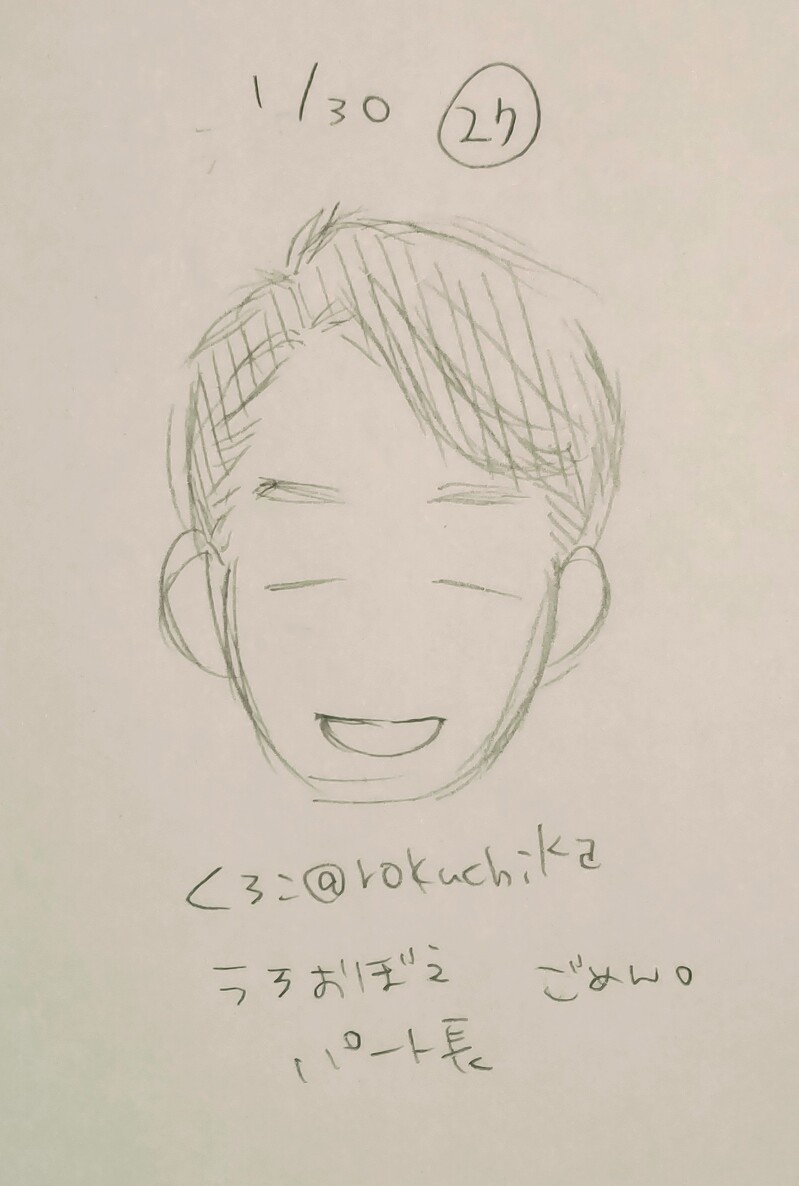 1/30 27
くろこ@rokuchika
うろおぼえ ごめん。
パート長